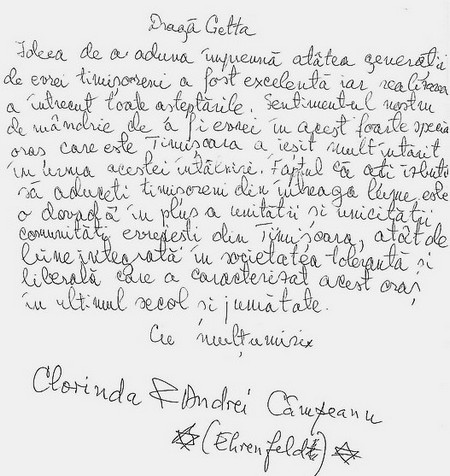 Dragă Getta
Ideea de a aduna împreună atâtea generații
de evrei timișoreni a fost excelentă iar realizarea
a întrecut toate așteptările. Sentimentul nostru
de mândrie de a fi evrei în acest foarte special
oraș care este Timișoara a ieșit mult întărit
în urma acestei întâlniri. Faptul că ați izbutit
să aduceți timișoreni din întreaga lume este
o dovadă în plus a unității și unicității
comunității evreiești din Timișoara, atât de
bine integrată în societatea tolerantă și
liberală care a caracterizat acest oraș
în ultimul secol și jumătate.
Cu mulțumiri
Clorinda & Andrei Câmpeanu
(Ehrenfeld)